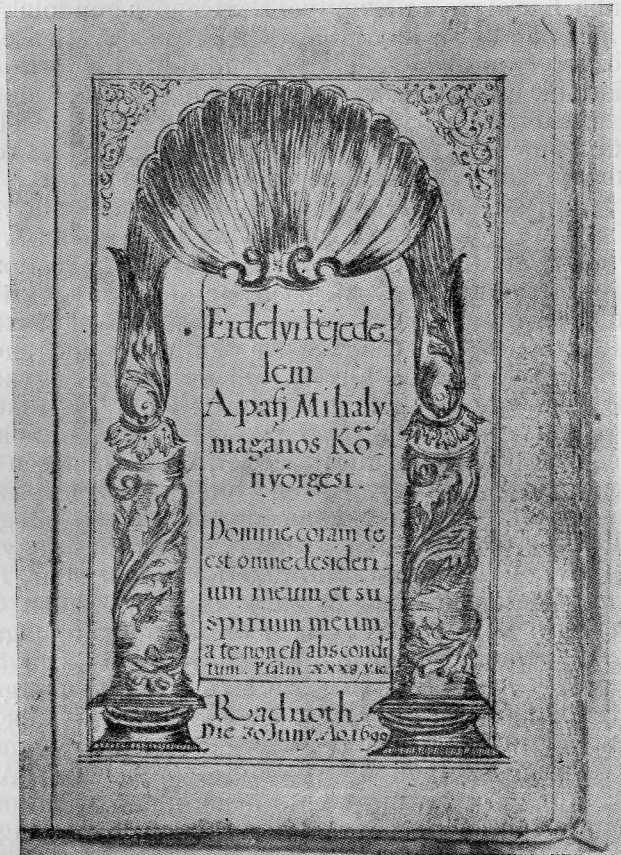 Erdelyi Fejede
lem
Apafi Mihaly
maganos Kő
nyörgesi.
Domine coram te
est omne desideri
um meum, et su
spirium meum
a te non est abscondi
tum. Psalm
Radnoth
Die 30 Juny. Ao. 1690